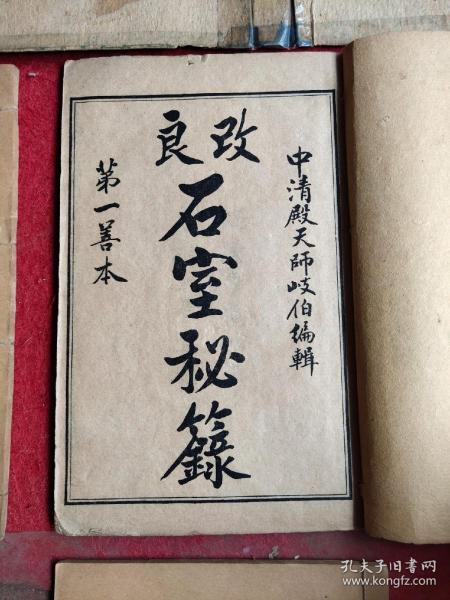 改良
中清殿天师岐伯編輯
石室秘籙
第一善本
孔夫子旧书网
www.kongfz.com